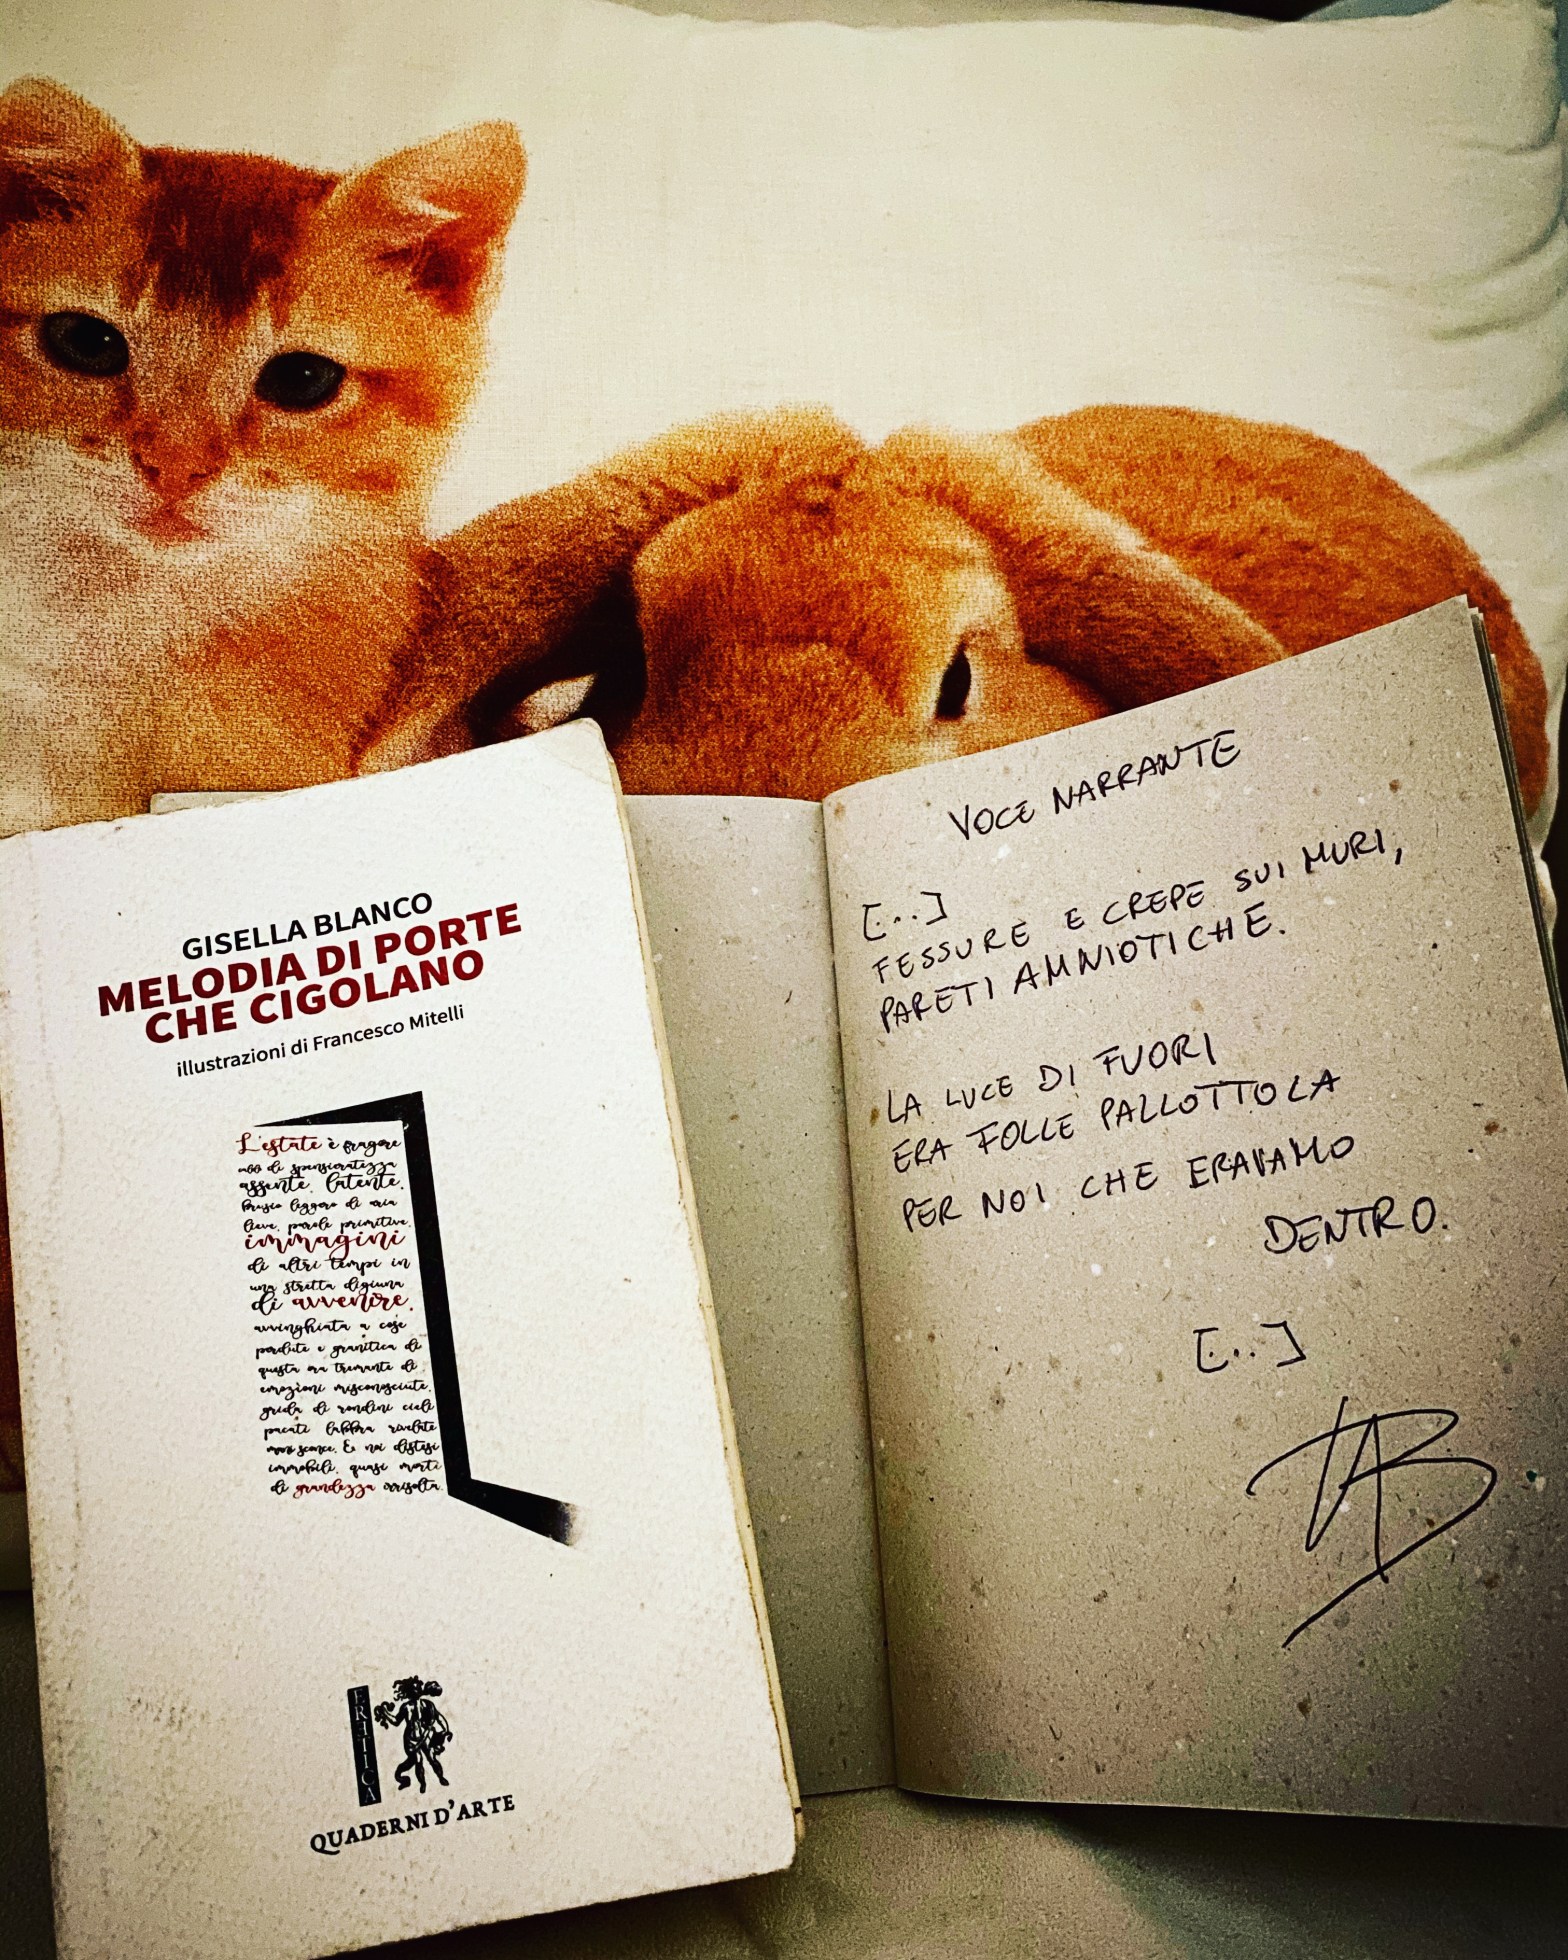 GISELLA BLANCO
MELODIA DI PORTE
CHE CIGOLANO
illustrazioni di Francesco Mitelli
L'estate è fragore
di spensieratezza
assente, latente,
brusio leggero di aria
lieve, parole primitive,
immagini
di altri tempi in
una stretta digiuna
di avvenire,
avvinghiata a cose
perdute e granitica di
questa ora tremante di
emozioni misconosciute,
grida di rondini cieli
pacati labbra
sconce. E noi distesi
immobili, quasi morti
di grandezza irrisolta.
ERETICA
QUADERNI D'ARTE
VOCE NARRANTE
[...]
FESSURE E CREPE SUI MURI,
PARETI AMNIOTICHE.
LA LUCE DI FUORI
ERA FOLLE PALLOTTOLA
PER NOI CHE ERAVAMO
DENTRO.
[...]